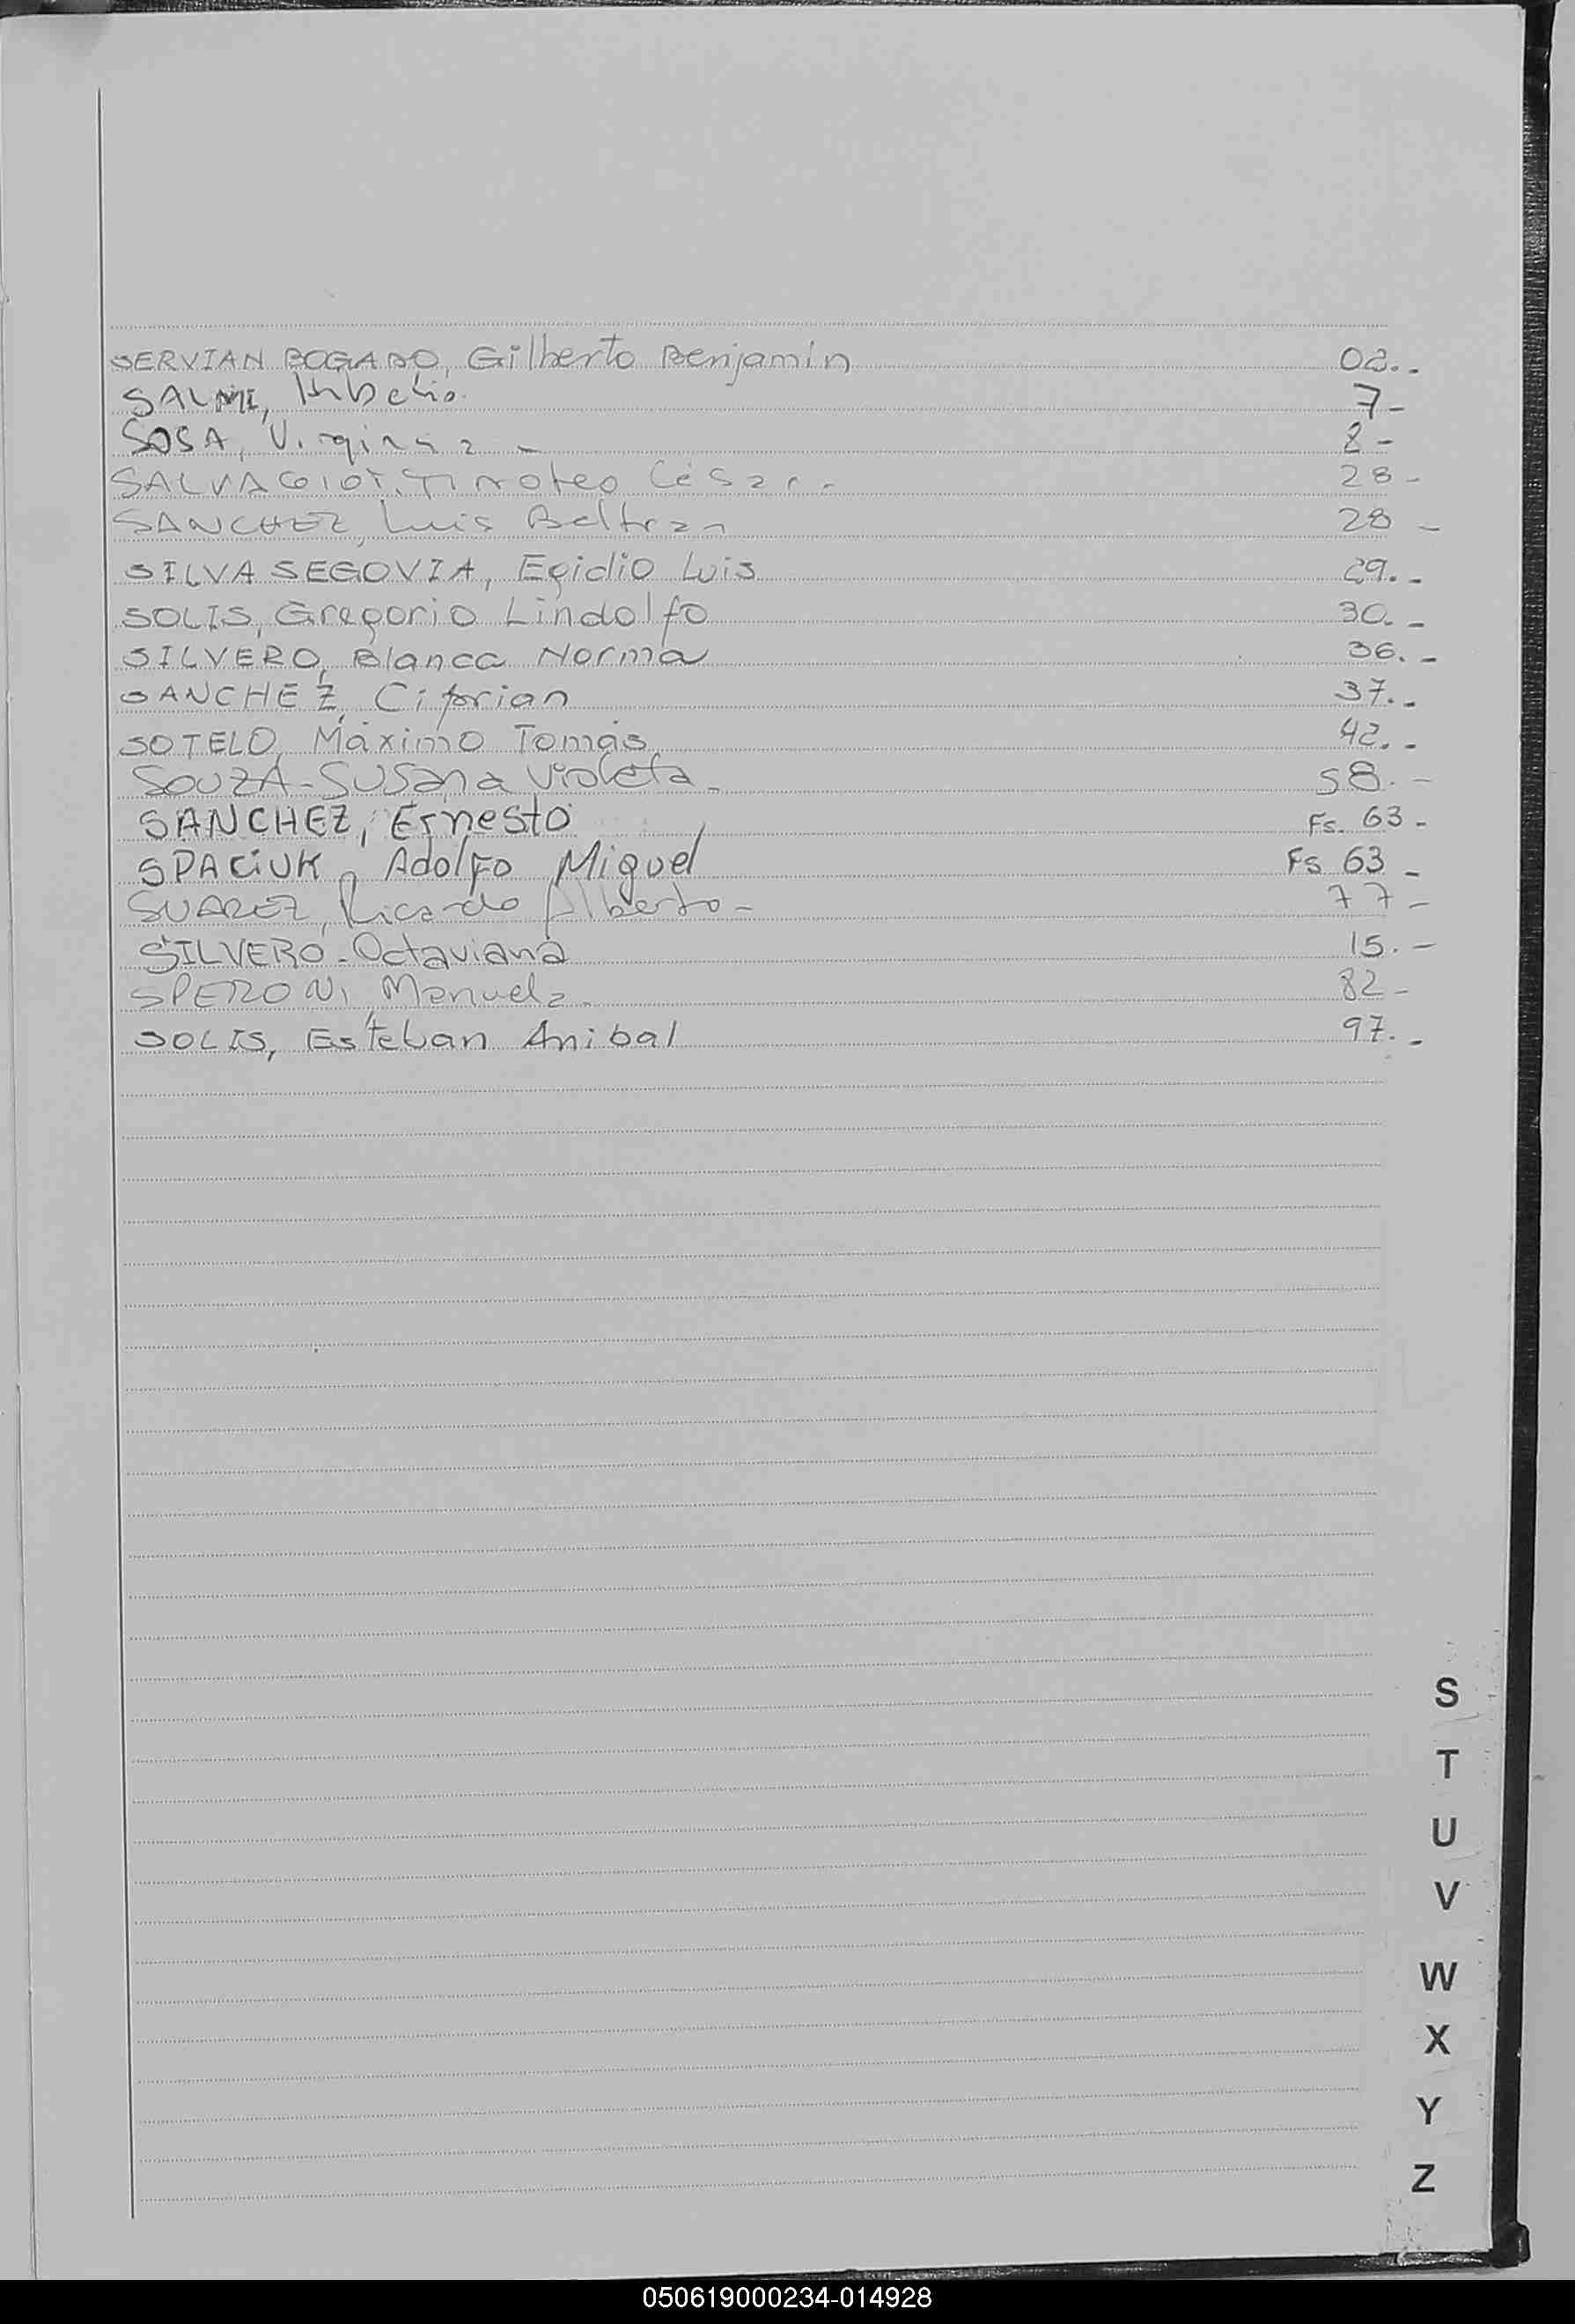 SERVIAN BOGADO, Gilberto Benjamin 02.-
SALMI, 7-
SOSA, Virginia - 8-
SALVAGIOT, Timoteo César.- 28-
SANCHEZ, Luis Beltran 28-
SILVA SEGOVIA, Egidio Luis 29.-
SOLIS, Gregorio Lindolfo 30.-
SILVERO, Blanca Norma 36.-
SANCHEZ, Ciprian 37.-
SOTELO, Máximo Tomás 42.-
SOUZA-Susana Violeta - 58.-
SANCHEZ, Ernesto Fs. 63-
SPACiUK, Adolfo Miguel Fs 63-
SUAREZ, Ricardo Alberto- 77-
SILVERO-Octaviana 15.-
SPERONI, Manuela. 82-
SOLIS, Esteban Anibal 97.-
S
T
U
V
W
X
Y
Z
050619000234-014928